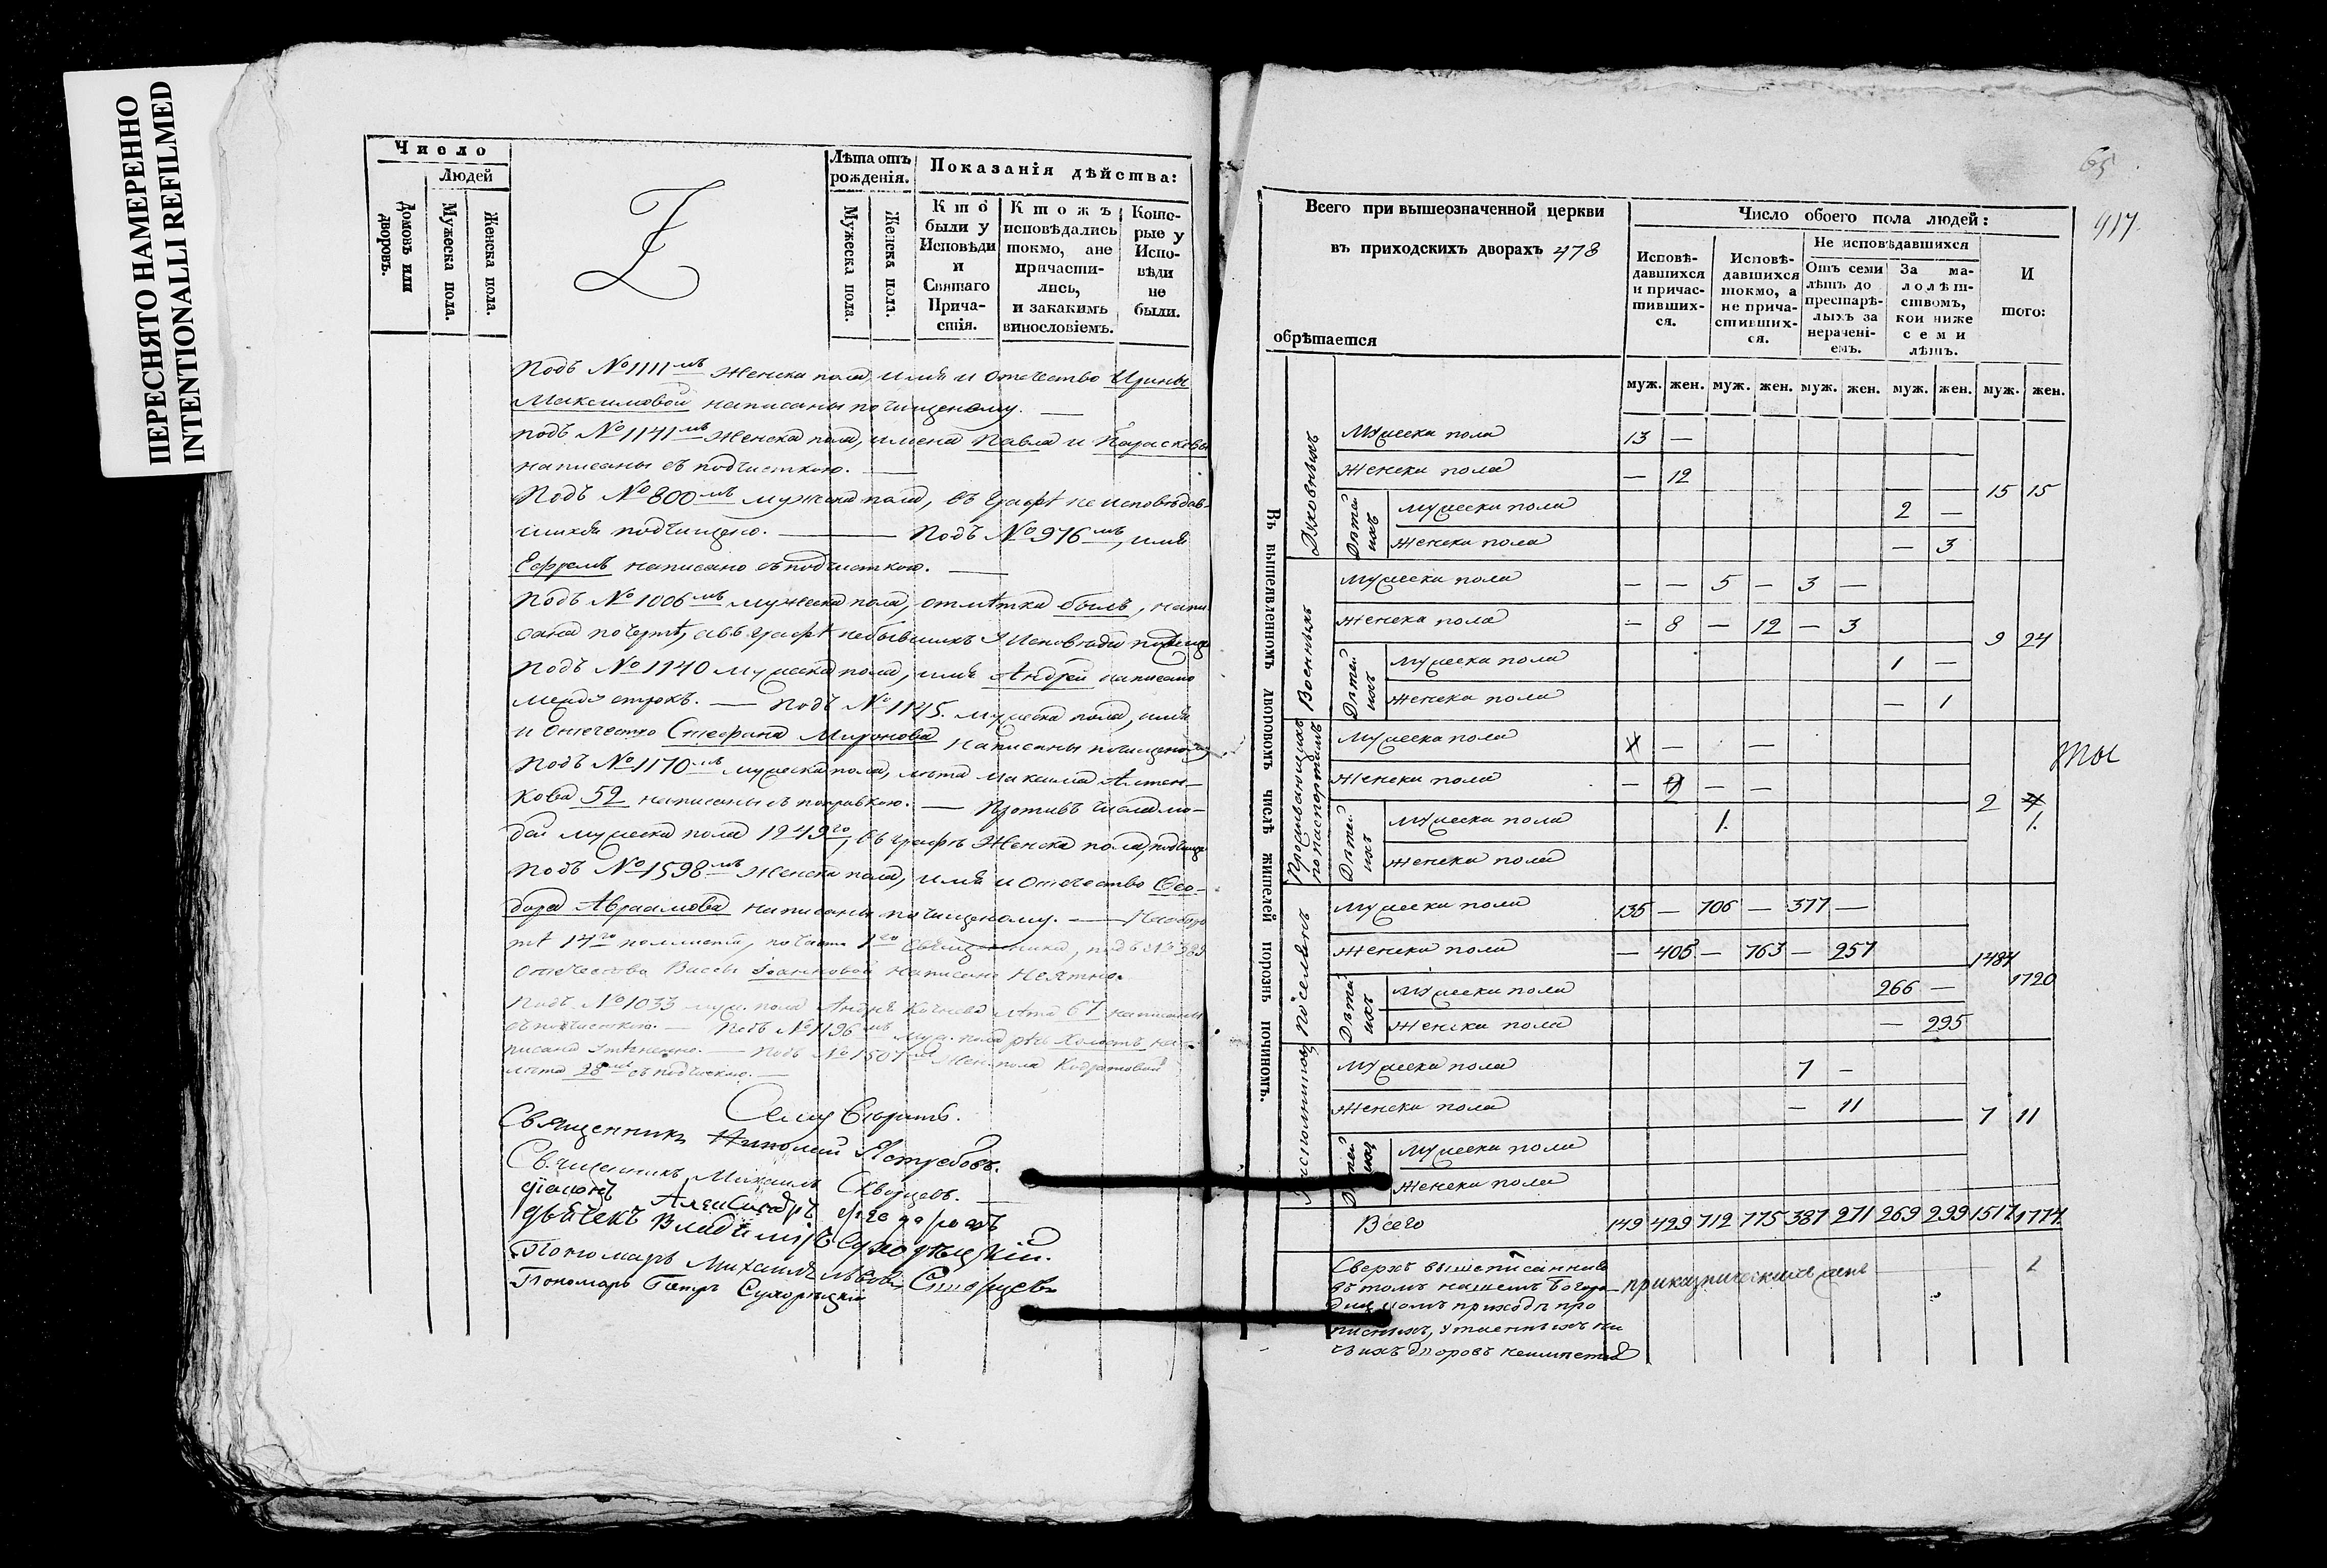 ПЕРЕСНЯТО НАМЕРЕННО
INTENTIONALLI REFILMED
Число
Людей
Домовъ или дворовъ.
Мужеска пола.
Женска пола.
Лѣта отъ рожденія.
Мужеска пола.
Женска пола.
Показанія дѣйства:
Кто были у Исповѣди и Святаго Причастія.
Ктожъ исповѣдались токмо, а не причастились, и за какимъ винословіемъ.
Которые у Исповѣди не были.
Подъ №1111мъ Женска пола, имя и Отечество Ирины
Максимовой написаны по чищеному.
подъ №1141мъ Женска пола, имена Павла и Парасковьи
написаны съ подчисткою.
Подъ №800мъ мужеска пола, въ графѣ не исповѣдав-
шихся подчищено. — Подъ №976мъ, имя
Ефремъ написано съ подчисткою.
Подъ №1006мъ мужеска пола, отмѣтка былъ, напи
сана по чертѣ, а въ графѣ небывшихъ у Исповѣди
Подъ №1140 мужеска пола, имя Андрей написано
между строкъ. — Подъ №1145. мужеска пола, имя
и Отечество Стефана Миронова написаны по чищеному
Подъ №1170мъ мужеска пола, лѣта Максима
кова 52 написаны съ поправкою. — Противъ числа лю-
дей мужеска пола 1249го, въ графѣ Женска пола, подчищ
Подъ №1598мъ Женска пола, имя и Отечество Ѳео-
дора Авраамова написаны по чищеному. — На оборо
тѣ 14го полулиста, по части 1го Священника, подъ №389
Отечество Вассы Іоанновой написано неятно.
Подъ №1033 муж. пола Андрея лѣта 67 написаны
съ подчисткою. — Подъ №1196мъ муж. пола рѣчь Холостъ на-
писана — Подъ №1507мъ Жен. пола Кодратовой
лѣта 28 съ подчисткою.
Священникъ Николай Ястребовъ.
Священникъ Михаилъ Скворцевъ.
діаконъ Александръ
дьячекъ Владиміръ Сухорѣцкій.
Пономарь Михаилъ
Пономарь Петръ Сухорѣцкій
65
417
Всего при вышеозначенной церкви
въ приходскихъ дворахъ 478
обрѣтается
Число обоего пола людей:
Исповѣдавшихся и причастившихся.
Исповѣдавшихся токмо, а не причастившихся.
Не исповѣдавшихся
Отъ семи лѣтъ до престарѣлыхъ за нерачені-емъ.
За малолѣтствомъ, кои ниже семи лѣтъ.
И того:
муж. жен. муж. жен. муж. жен. муж. жен. муж. жен.
Въ вышеявленномъ дворовомъ числѣ жителей порознь по чиномъ.
Духовныхъ
Мужеска пола 13 —
Женска пола — 12
Дѣтей ихъ
Мужеска пола 2 —
Женска пола — 3
15 15
Военныхъ
Мужеска пола — — 5 — 3 —
Женска пола — 8 — 12 — 3
Дѣтей ихъ
Мужеска пола 1 —
Женска пола — 1
9 24
Проживающихъ по паспортамъ
Мужеска пола — —
Женска пола — — —
Дѣтей ихъ
Мужеска пола 1.
Женска пола
2 1.
Поселянъ
Мужеска пола 135 — 706 — 377 —
Женска пола — 408 — 763 — 257
Дѣтей ихъ
Мужеска пола 266 —
Женска пола — 295
1484 1720
Мужеска пола 7 —
Женска пола — 11
Дѣтей ихъ
Мужеска пола
Женска пола
7 11
Всего 149 429 712 775 387 271 269 299 1517 1774
Сверхъ вышеписанныхъ
въ томъ нашемъ Богоро-
дицкомъ приходѣ про
писныхъ, утаенныхъ ни
чьихъ дворовъ неимѣется